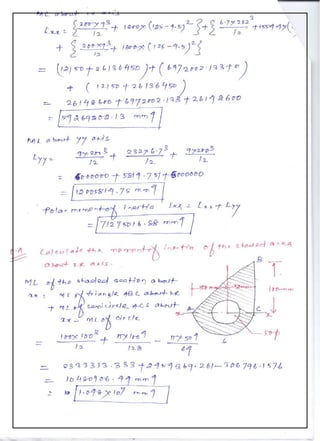 MI about xx axis
Lxx = { 200×9³/12 + 1800×(125-4.5)² } + { 6.7×232³/12 + 1554.4×(
+ { 200×9³/12 + 1800×(125-4.5)² }
= (12150 + 26136450) + (6972002.133 + 0)
+ (12150 + 26136450)
= 26148600 + 6972002.133 + 26148600
= 59269202.13 mm⁴
MI about yy axis
Lyy = 9×200³/12 + 232×6.7³/12 + 9×200³/12
= 6000000 + 5814.75 + 6000000
= 12005814.75 mm⁴
Polar moment of inertia Ixx = Lxx + Lyy
= 71275016.88 mm⁴
Calculate the moment of inertia of the shaded area
about xx axis.
MI of the shaded section about
xx = MI of triangle ABC about xx
+ MI of semicircle ACS about
xx - MI of circle
= 100×100³/12 + π×100⁴/128 - π×50⁴/64
= 8333333.333 + 2454369.261 - 306796.1576
= 10480906.44 mm⁴
= 1.048×10⁷ mm⁴
B
A
C
100mm
50φ